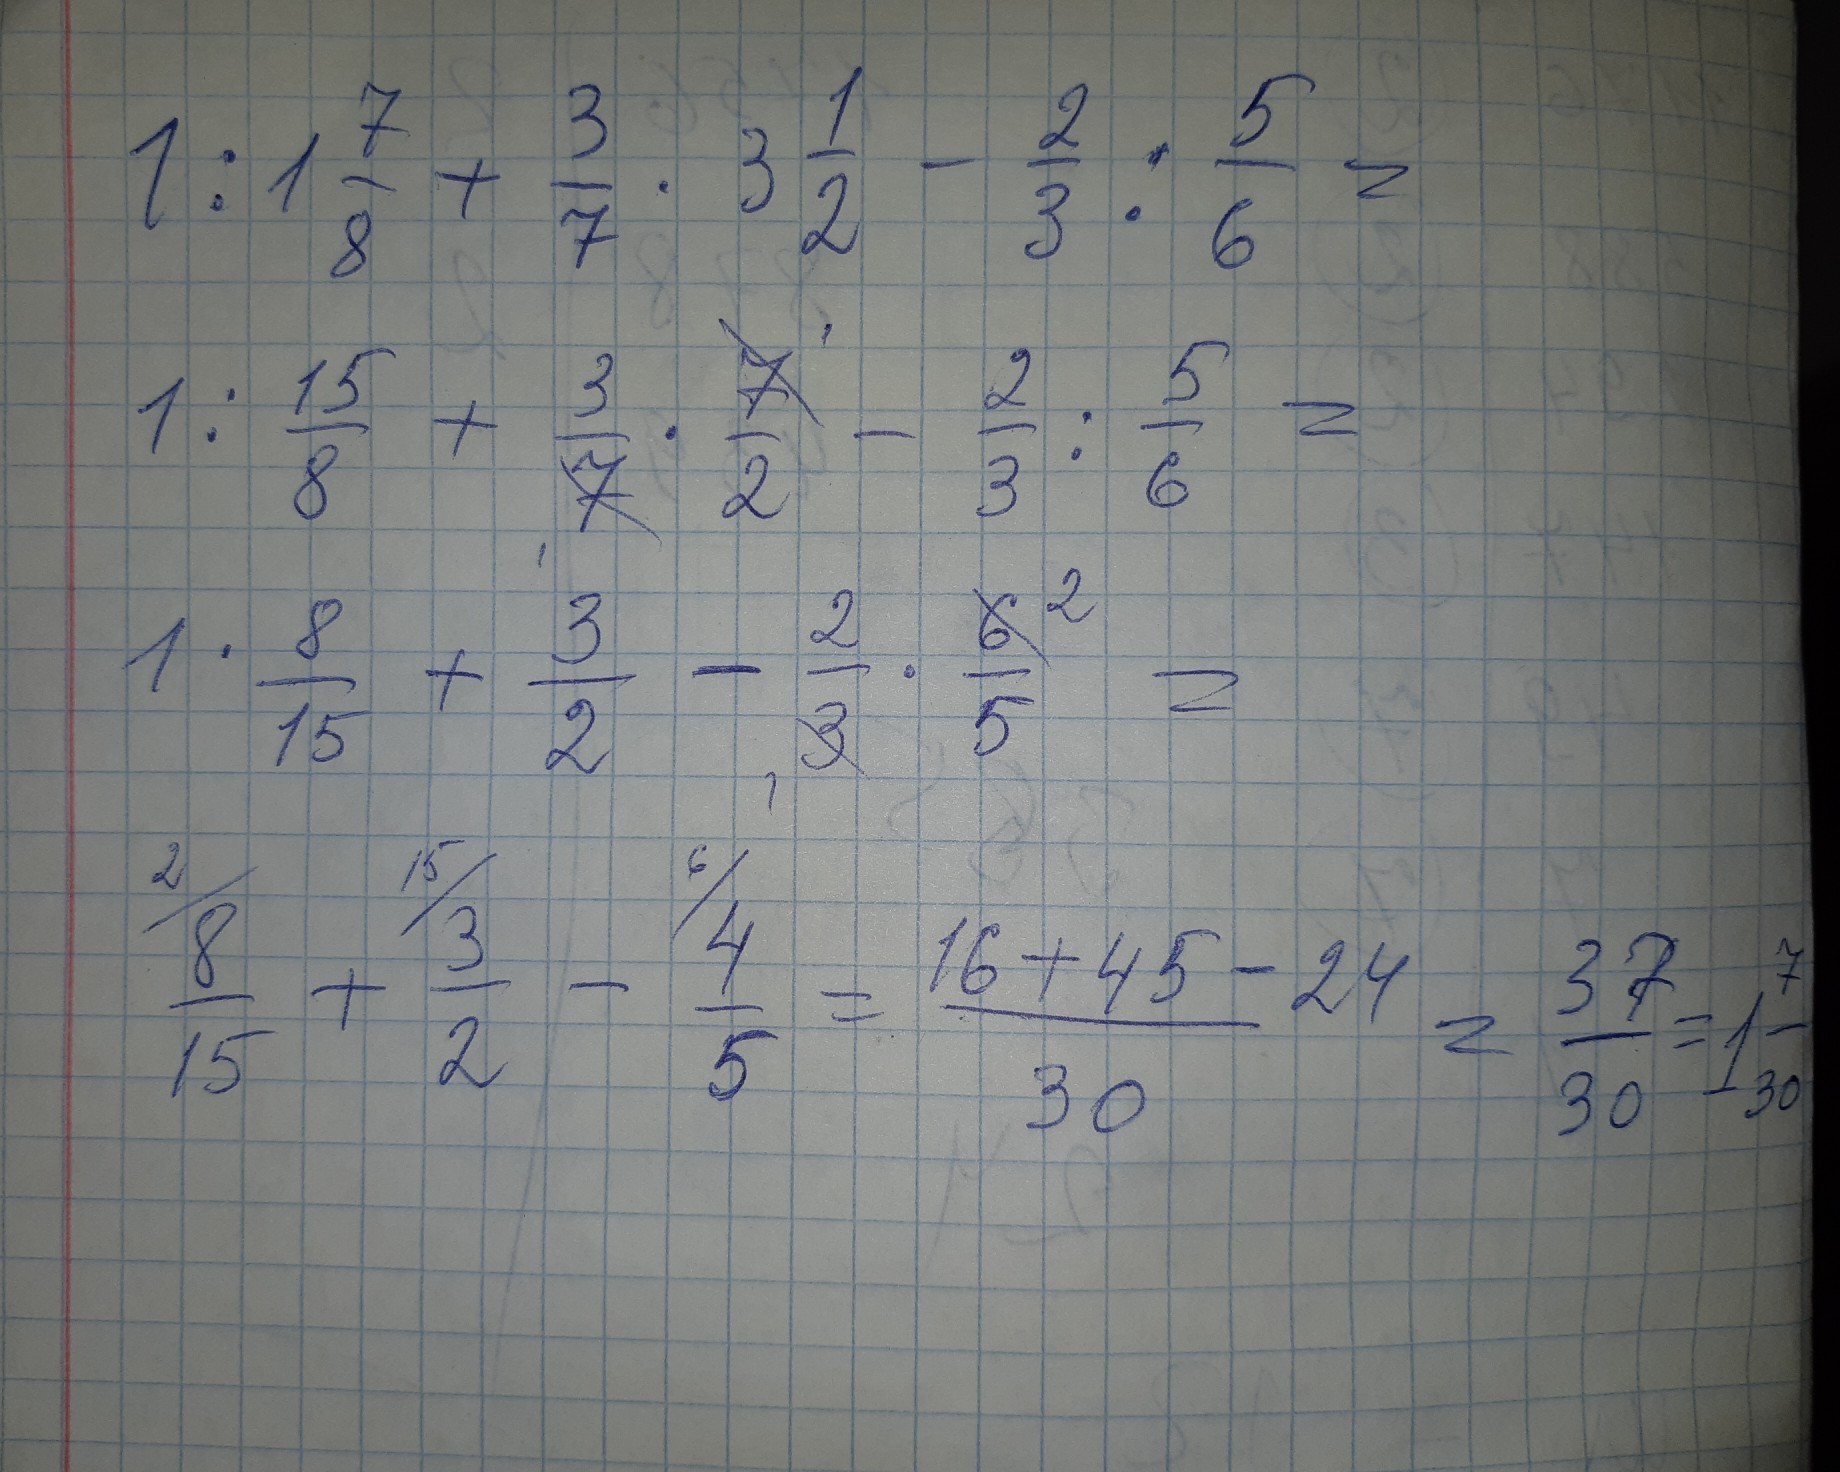 1 : 1 7/8 + 3/7 · 3 1/2 - 2/3 : 5/6 =
1 : 15/8 + 3/7 · 7/2 - 2/3 : 5/6 =
1 · 8/15 + 3/2 - 2/3 · 6/5 =
8/15 + 3/2 - 4/5 = (16+45-24)/30 = 37/30 = 1 7/30